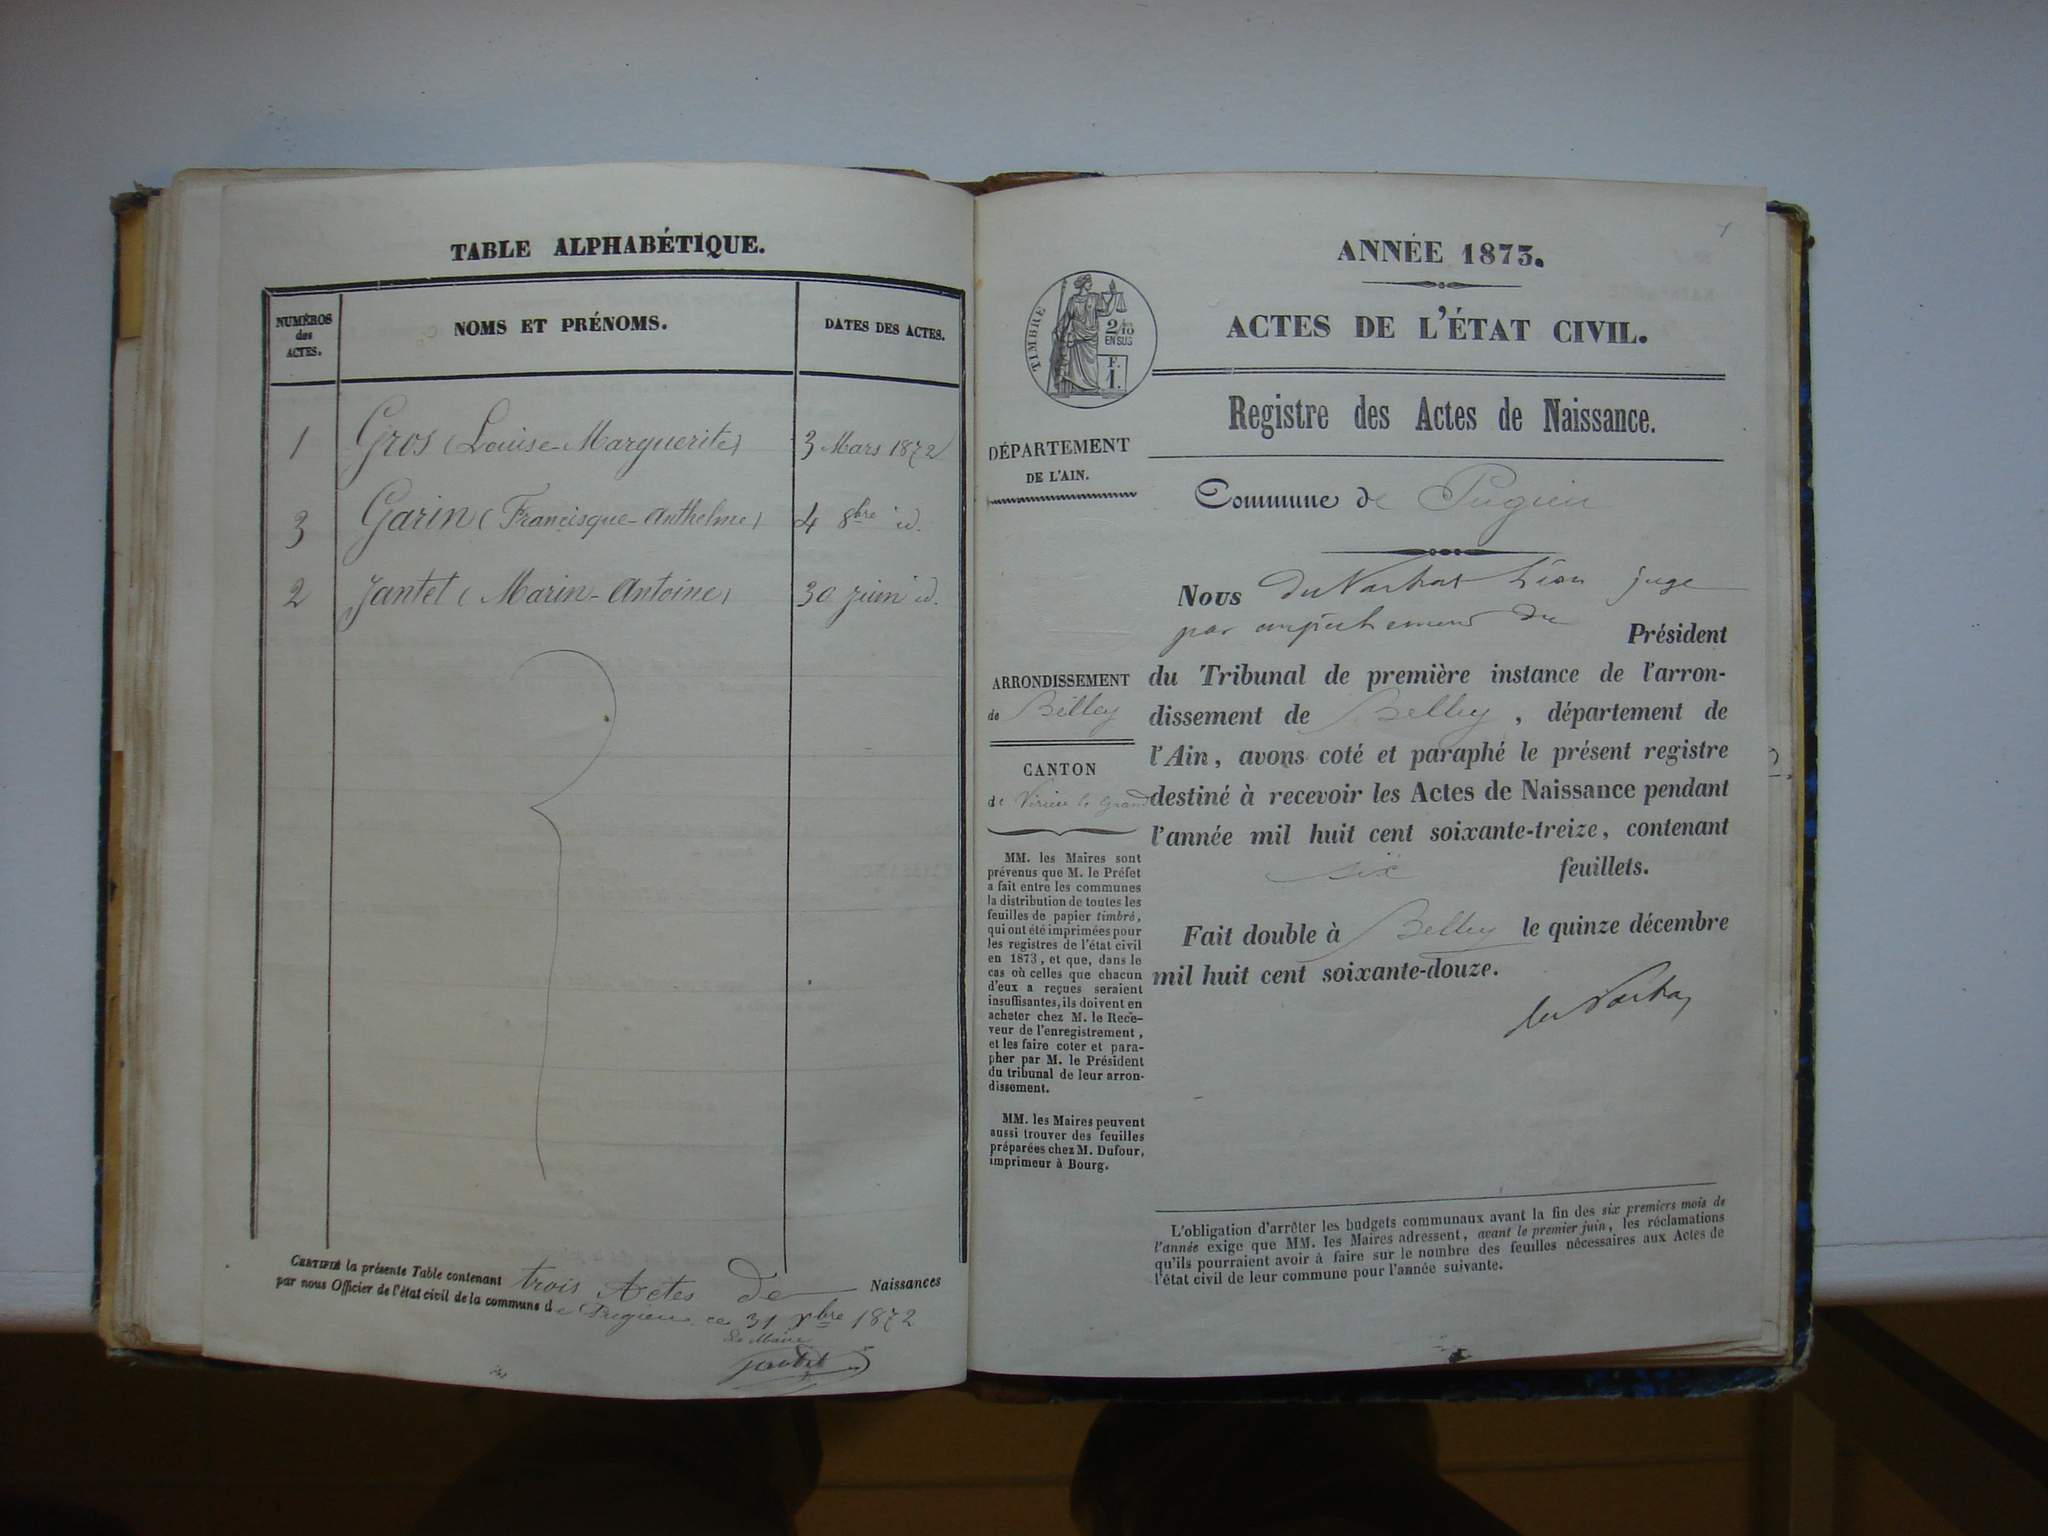 TABLE ALPHABÉTIQUE.
NUMÉROS
des
ACTES.
NOMS ET PRÉNOMS.
DATES DES ACTES.
1 Gros (Louise-Marguerite) 3 Mars 1872
3 Garin (Francisque-Anthelme) 4 8bre id.
2 Jantet (Marin-Antoine) 30 juin id.
CERTIFIÉ la présente Table contenant trois Actes de Naissances
par nous Officier de l'état civil de la commune de Pugieu ce 31 Xbre 1872
Le Maire
Jantet
1
ANNÉE 1873.
ACTES DE L'ÉTAT CIVIL.
TIMBRE
2/10
EN SUS
F.
1.
Registre des Actes de Naissance.
DÉPARTEMENT
DE L'AIN.
Commune de Pugieu
ARRONDISSEMENT
de Belley
CANTON
de Virieu le Grand
MM. les Maires sont
prévenus que M. le Préfet
a fait entre les communes
la distribution de toutes les
feuilles de papier timbré,
qui ont été imprimées pour
les registres de l'état civil
en 1873, et que, dans le
cas où celles que chacun
d'eux a reçues seraient
insuffisantes, ils doivent en
acheter chez M. le Rece-
veur de l'enregistrement,
et les faire coter et para-
pher par M. le Président
du tribunal de leur arron-
dissement.
MM. les Maires peuvent
aussi trouver des feuilles
préparées chez M. Dufour,
imprimeur à Bourg.
Nous Léon juge
par empêchement du Président
du Tribunal de première instance de l'arron-
dissement de Belley, département de
l'Ain, avons coté et paraphé le présent registre
destiné à recevoir les Actes de Naissance pendant
l'année mil huit cent soixante-treize, contenant
six feuillets.
Fait double à Belley le quinze décembre
mil huit cent soixante-douze.
L'obligation d'arrêter les budgets communaux avant la fin des six premiers mois de
l'année exige que MM. les Maires adressent, avant le premier juin, les réclamations
qu'ils pourraient avoir à faire sur le nombre des feuilles nécessaires aux Actes de
l'état civil de leur commune pour l'année suivante.